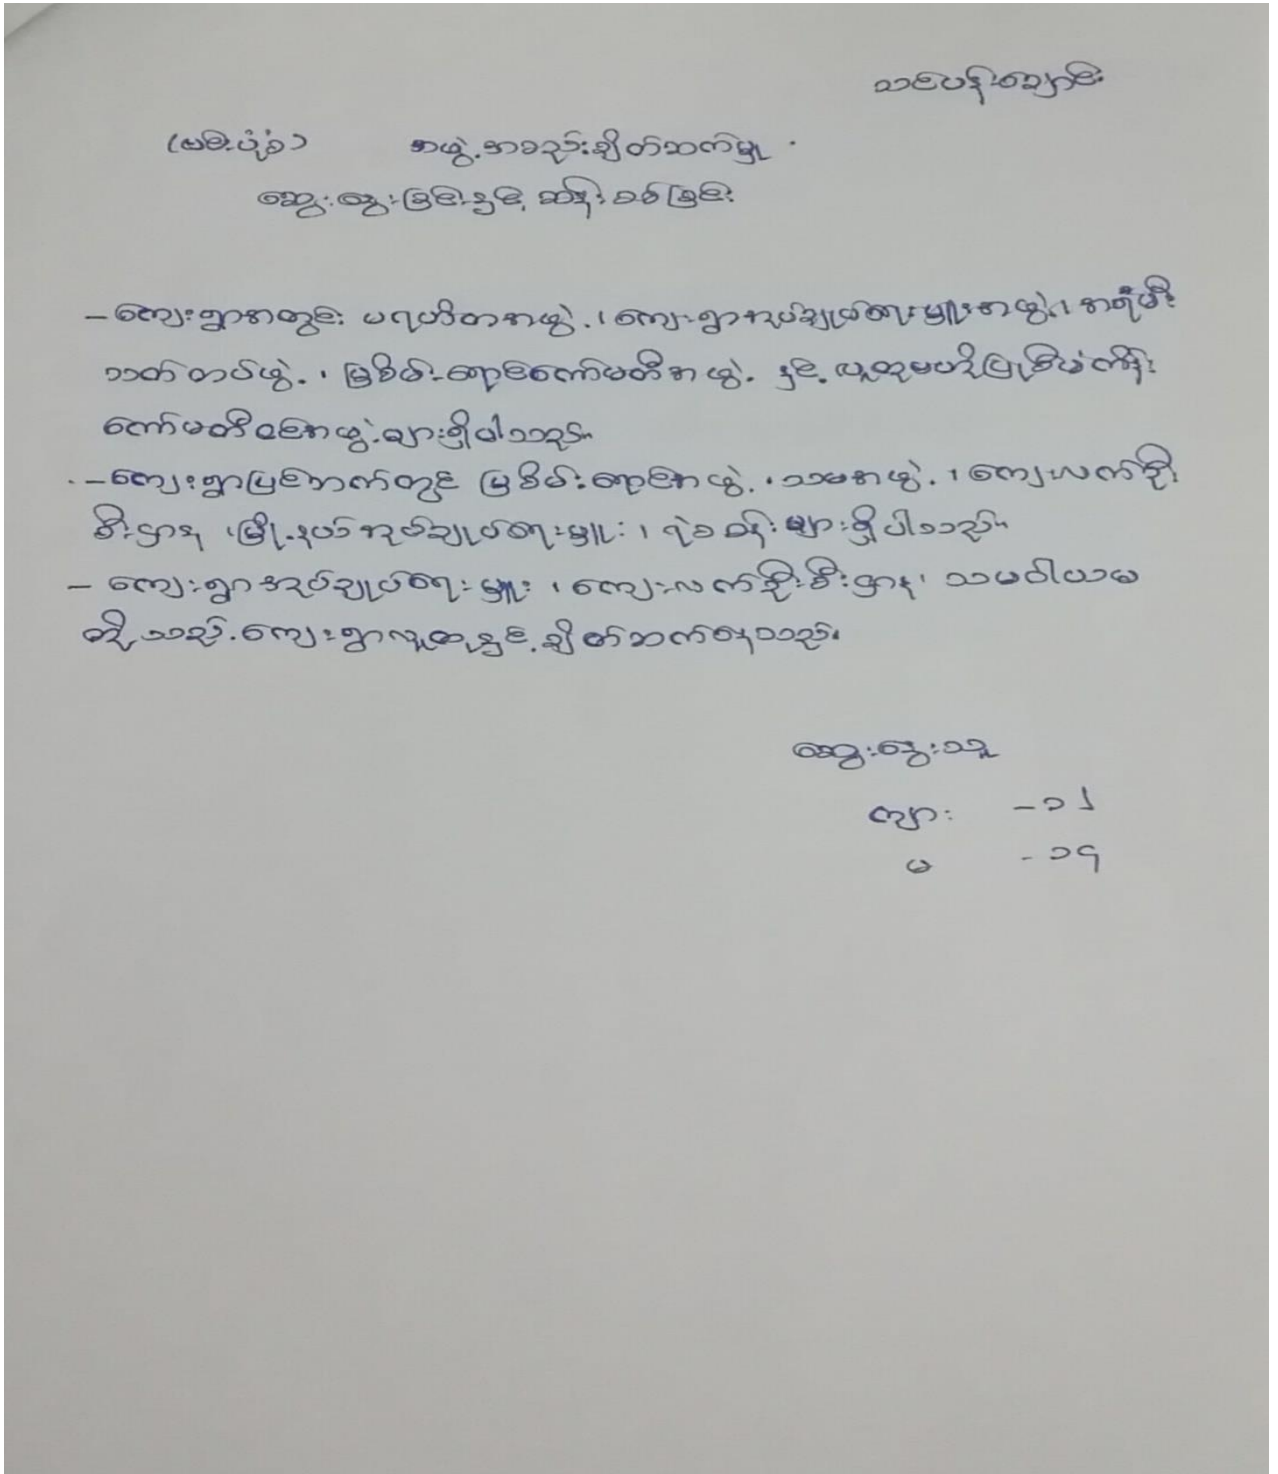 သင်ပန်းချောင်း
(ဗမ်းပုံစံ) အဖွဲ့အစည်းချိတ်ဆက်မှု
ဆွေးနွေးခြင်းနှင့် ဆန်းစစ်ခြင်း
- ကျေးရွာအတွင်း ပရဟိတအဖွဲ့၊ ကျေးရွာအုပ်ချုပ်ရေးမှူးအဖွဲ့၊ အရံမီး
သတ်တပ်ဖွဲ့၊ မြစိမ်းရောင်ကော်မတီအဖွဲ့ နှင့် လူထုဗဟိုပြုစီမံကိန်း
ကော်မတီဝင်အဖွဲ့များရှိပါသည်။
- ကျေးရွာပြင်ဘက်တွင် မြစိမ်းရောင်အဖွဲ့၊ သမအဖွဲ့၊ ကျေးလက်ဦး
စီးဌာန၊ မြို့နယ်အုပ်ချုပ်ရေးမှူး၊ ရဲစခန်းများရှိပါသည်။
- ကျေးရွာအုပ်ချုပ်ရေးမှူး၊ ကျေးလက်ဦးစီးဌာန၊ သမဝါယမ
တို့သည် ကျေးရွာလူထုနှင့် ချိတ်ဆက်နေသည်။
ဆွေးနွေးသူ
ကျား -၁၂
မ -၁၄